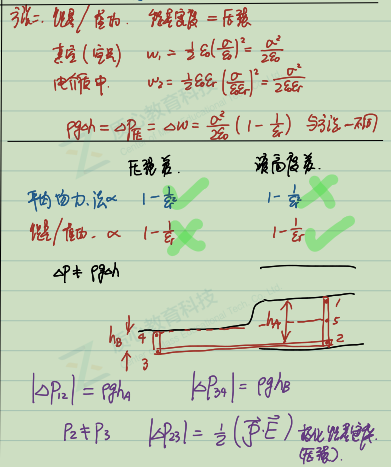 方法二：能量/虚功. 能量密度 = 压强
真空(空气) w₁ = ½ε₀(σ/ε₀)² = σ²/2ε₀
电介质中. w₂ = ½ε₀εᵣ(σ/ε₀εᵣ)² = σ²/2ε₀εᵣ
ρgΔh = ΔP压 = Δw = σ²/2ε₀ (1 - 1/εᵣ) 与方法一不同
压强差. 液面高度差.
平均场力.法 ∝ 1 - 1/εᵣ² 1 - 1/εᵣ²
能量/虚功. ∝ 1 - 1/εᵣ 1 - 1/εᵣ
ΔP ≠ ρgΔh
h_B 4 3 h_A 1 5 2
|ΔP₁₂| = ρgh_A |ΔP₃₄| = ρgh_B
P₂ ≠ P₃ |ΔP₂₃| = ½(P⃗·E⃗) 极化能量密度
(压强).